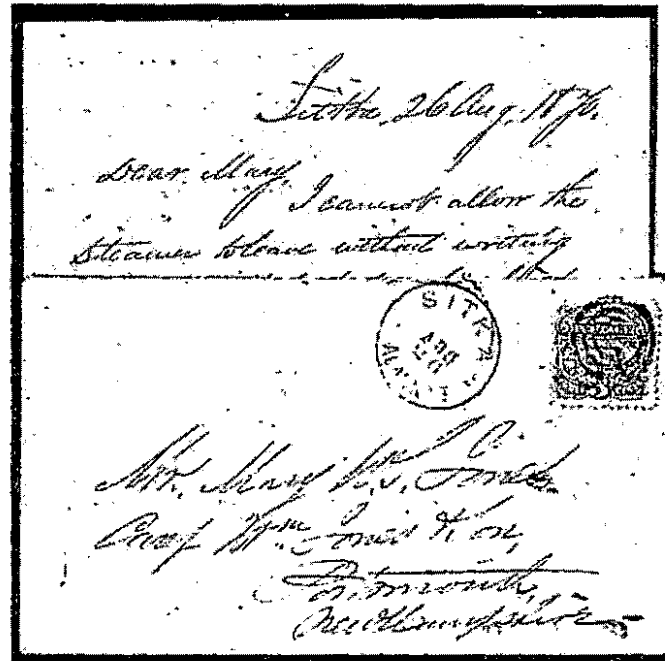 Sitka 26 Aug. 1870.
Dear Mary,
I cannot allow the
steamer to leave without writing
SITKA
AUG
Mrs. Mary W. S. Jones
Care of Wm. Jones & Son,
Portsmouth,
New Hampshire